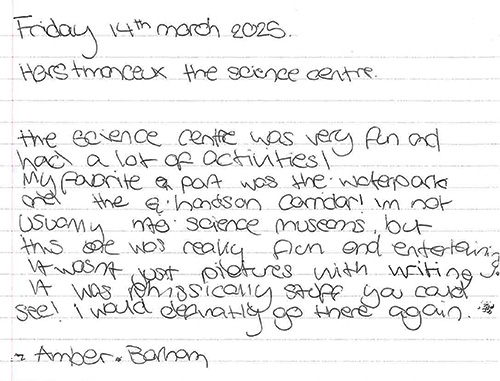 Friday 14th march 2025.
Herstmonceux the science centre.
the science centre was very fun and
had a lot of activities!
My favorite part was the waterpark
and the hands on corridor! im not
usually into science museums, but
this one was really fun and entertaining
it wasnt just pictures with writing
it was phissically stuff you could
see! I would definatly go there again.
~ Amber. Barham